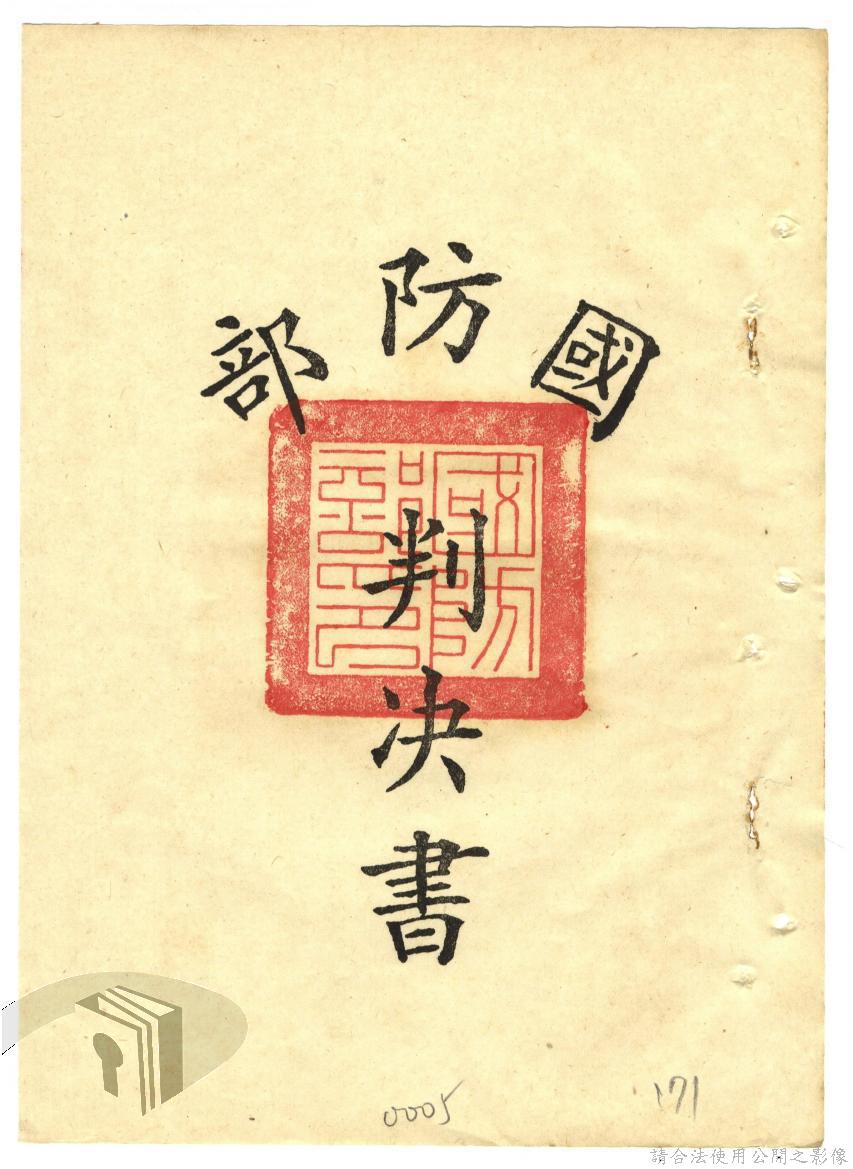 國防部
判決書
國防部印
0005
171
請合法使用公開之影像